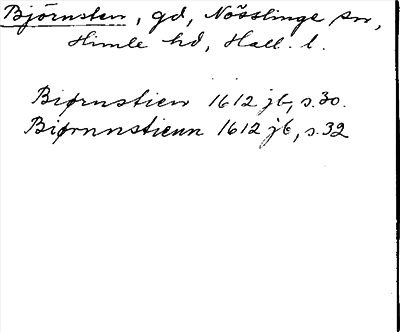 Björnsten, gd, Nösslinge sn,
Himle hd, Hall. l.
Biørnstien 1612 jb, s. 30.
Biørnnstienn 1612 jb, s. 32